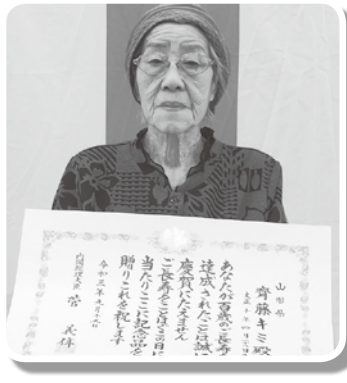 山形県
齊藤キミ殿
あなたが百歳のご長寿を
達成されたことは誠に
慶賀にたえません
ご長寿をことほぎこの日に
当たりここに記念品を
贈りこれを祝します
令和三年九月十五日
内閣総理大臣 菅 義偉